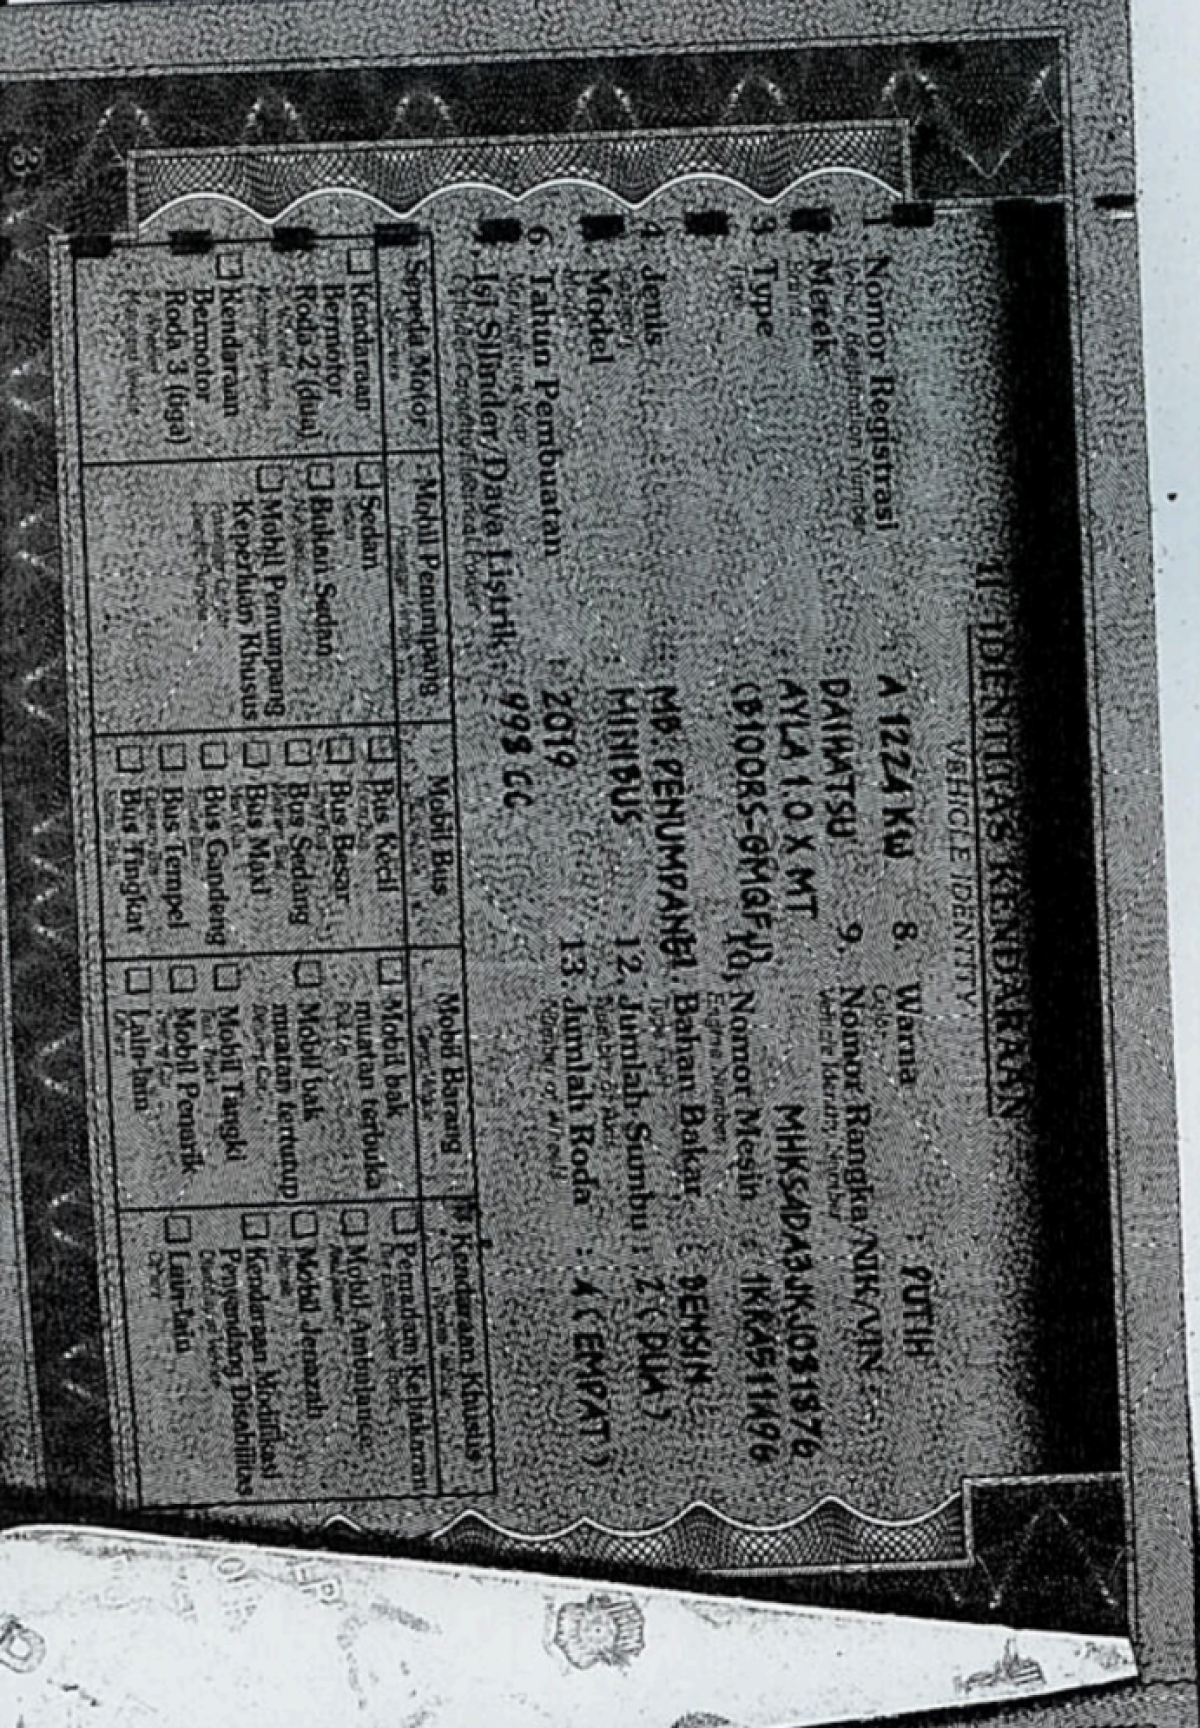 II. IDENTITAS KENDARAAN
VEHICLE IDENTITY
1. Nomor Registrasi : A 1224 KW
Vehicle Registration Number
2. Merek : DAIHATSU
3. Type : AYLA 1.0 X MT
Type (B100RS-GMQFJ)
4. Jenis : MB. PENUMPANG
5. Model : MINIBUS
6. Tahun Pembuatan : 2019
Manufacture Year
7. Isi Silinder/Daya Listrik : 998 CC
Cylinder Capacity/Electrical Power
8. Warna : PUTIH
Color
9. Nomor Rangka/NIK/VIN :
Vehicle Identity Number
10. Nomor Mesin : 1KRA511496
Engine Number
11. Bahan Bakar : BENSIN
12. Jumlah Sumbu : 2 (DUA)
Number of Axis
13. Jumlah Roda : 4 (EMPAT)
Number of Wheel
Sepeda Motor
☐ Kendaraan
Bermotor
Roda 2 (dua)
☐ Kendaraan
Bermotor
Roda 3 (tiga)
Mobil Penumpang
☐ Sedan
☐ Bukan Sedan
☐ Mobil Penumpang
Keperluan Khusus
Mobil Bus
☐ Bus Kecil
☐ Bus Besar
☐ Bus Sedang
☐ Bus Maxi
☐ Bus Gandeng
☐ Bus Tempel
☐ Bus Tingkat
Mobil Barang
☐ Mobil bak
muatan terbuka
☐ Mobil bak
muatan tertutup
☐ Mobil Tangki
☐ Mobil Penarik
☐ Lain-lain
Kendaraan Khusus
☐ Pemadam Kebakaran
☐ Mobil Ambulance
☐ Mobil Jenazah
☐ Kendaraan Modifikasi
Penyandang Disabilitas
☐ Lain-lain
3